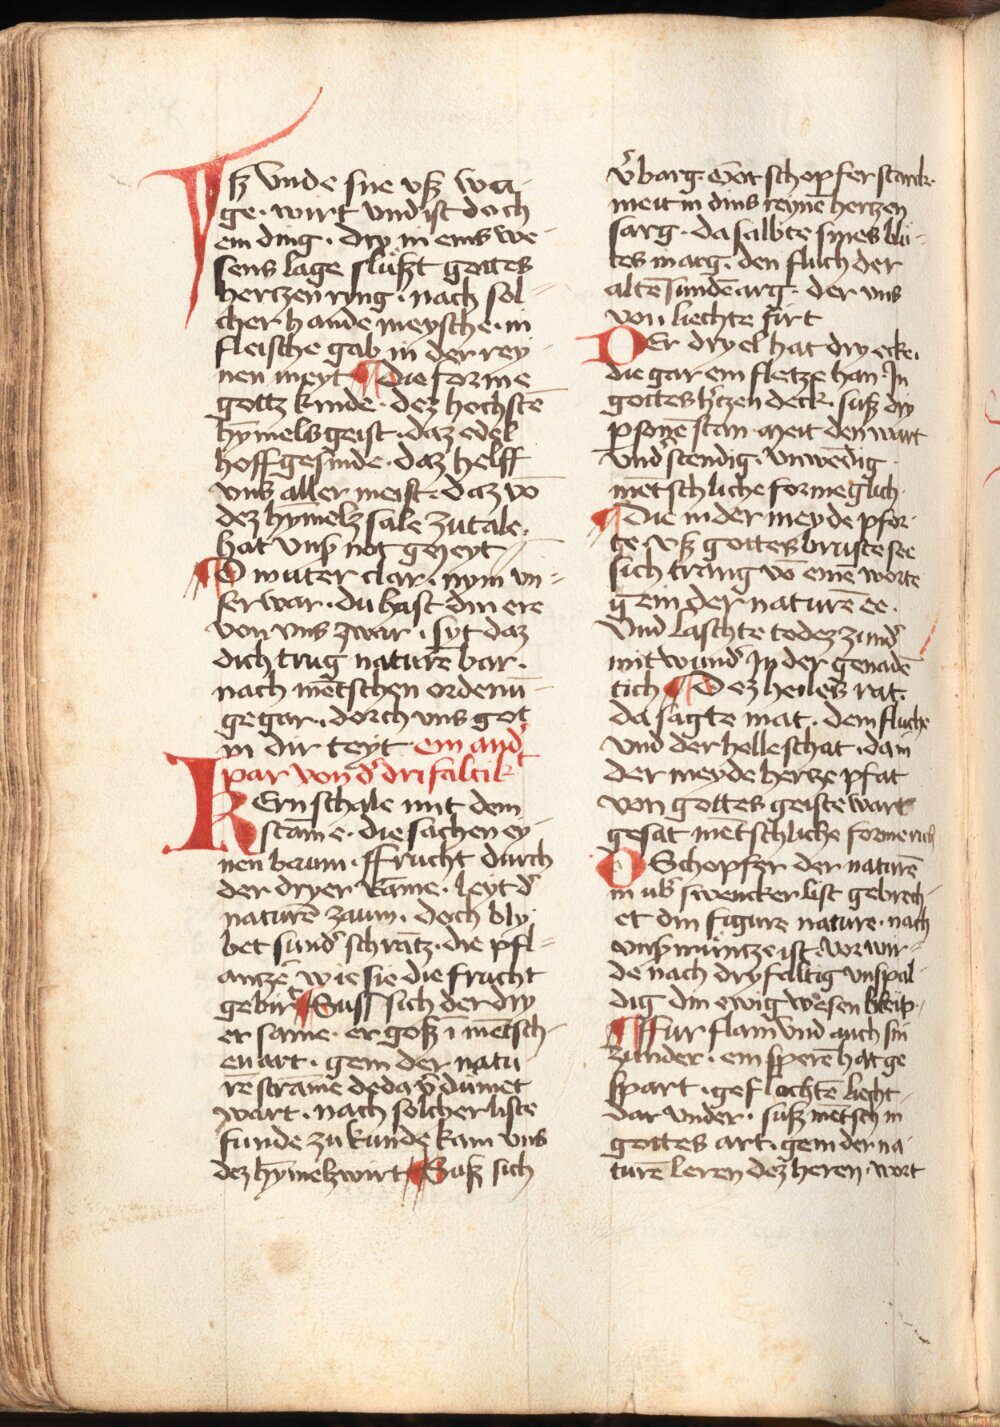 Iß vnde sne vß wa-
ge · wirt vnd ist doch
ein ding · dry in eins we-
sens lage flußzt gottes
hertzen ryng · nach sol-
cher hande meysche · in
fleische gab in der rey-
nen meyt ¶ die forme
gottz kinde · dez hochstē
hȳmels geist · daz edel
hoff gesinde · daz helff
vns aller meist · daz vō
dez hȳmelz sale zu tale ·
hat vnß not geneyt
¶ O muter clar · nym vn-
ser war · du hast din ere
von vns zwar · syt daz
dich trug naturē bar ·
nach mētschen ordenū-
ge gar · dorch vns got
in dir leyt ein and̓
par von d̓ drifaltik
KErn schale mit dem
stam̄e · die sachen ey-
nen baum · ffrucht durch
der dryer kam̄e · leyt d̓
naturē zaum · doch bly-
bet sund̓ schrātz · die pfl-
antzē wie sie die frucht
gebir̄ ¶ Suss sich der dry
er same · er goß i mētsch-
en art · gem der natu
rē strame deda v̓dūmet
wart · nach solcher liste
funde zu kunde kam vns
dez hȳmelz wirt ¶ Suß sich
v̓barg · Got schopfer starck ·
meit in dins reynē hertzen
sarg · da salbte sines blū-
tes marg · den fluch der
altē sundē arg · der vns
von liechte firt
DEr dryel hat dry ecke ·
die gar ein fletze han · In
gottes h̓tzen deck · suß dry
psonē stan · meit den wart
vnd stendig · vnwēdig
metschliche forme glich
¶ Die in der meyde pfor-
te · vß gottes bruste see
sich trang vō einē worte
gem der naturē ee ·
vnd laschte todez zund̓
mit wund̓ In der genadē
tich ¶ Dez heiles rat ·
da sagte mat · dem fluche
vnd der helle schat · da in
der meyde hertze pfat
von gottes geiste wart
gesat mētschliche forme rich
O Schopfer der naturē
in ub̓ swencker list gebrech-
et din figure nature · nach
vnß mūntze ist · vor wir-
de nach dryfeltig vnspal-
dig din ewig wesen bleip ·
¶ ffur flam vnd auch sin
zunder · ein sperē hat ge
spart · geflochtē liecht
dar vnder · suß mētsch in
gottes art · gem der na-
turē leren dez heren · wort